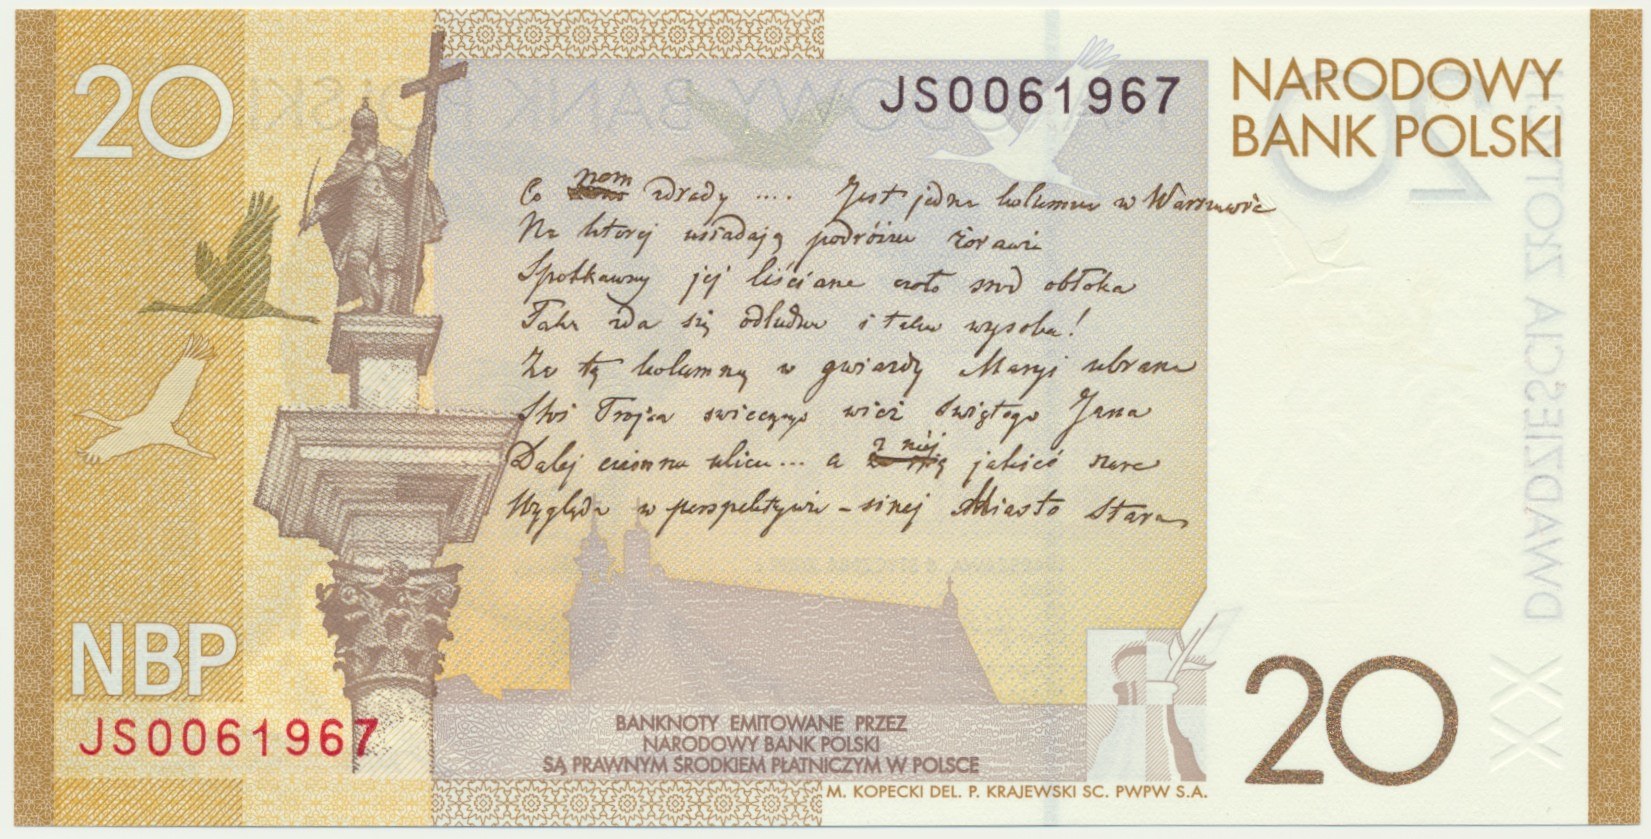 20
JS0061967
NARODOWY
BANK POLSKI
nom
Co zdrady .... Jest jedna kolumna w Warszawie
Na ktorej usiadają podróżne żorawie
Spotkawszy jej liściane czoło snod obłoka
Taka zda się odludna i taka wysoka!
Za tą kolumną w gwiazdy Maryi ubrana
Stoi Trojca swieczego wież Swiętego Jana
z niej
Dalej ciemna ulica... a jakieś szare
Wygląda w perspektywie - sinej Miasto Stare
NBP
JS0061967
BANKNOTY EMITOWANE PRZEZ
NARODOWY BANK POLSKI
SĄ PRAWNYM ŚRODKIEM PŁATNICZYM W POLSCE
M. KOPECKI DEL. P. KRAJEWSKI SC. PWPW S.A.
20
20
DWADZIEŚCIA ZŁOTYCH
XX